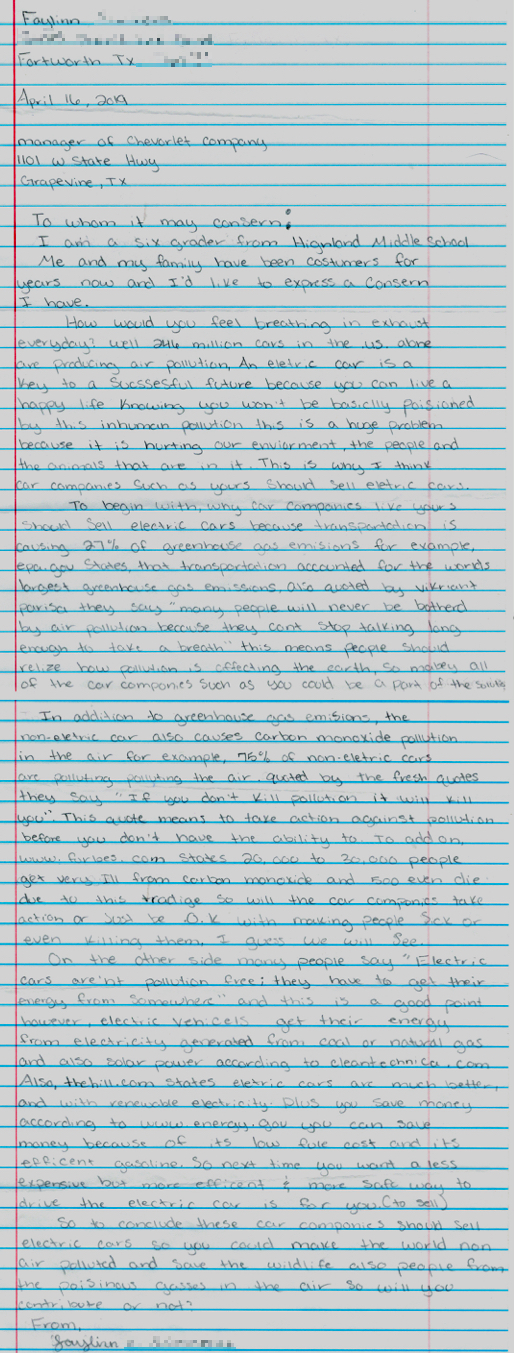 Faylinn
Fortworth Tx
April 16, 2019
manager of Cheverlet company
1101 w State Hwy
Grapevine, TX
To whom it may consern:
I am a six grader from Highland Middle School
Me and my family have been costumers for
years now and I'd like to express a Consern
I have.
How would you feel breathing in exhaust
everyday? well 246 million cars in the .us. alone
are producing air pollution, An eletric car is a
key to a Successful future because you can live a
happy life Knowing you won't be basiclly poisioned
by this inhuman pollution this is a huge problem
because it is hurting our enviorment, the people and
the animals that are in it. This is why I think
car companies Such as yours Should Sell eletric cars.
To begin with, why car companies like yours
Should Sell electric cars because transportation is
causing 27% of greenhouse gas emisions for example,
epa.gov States, that transportation accounted for the worlds
largest greenhouse gas emissions, also quoted by vikriant
parisa they say "many people will never be botherd
by air pollution because they cant Stop talking long
enough to take a breath" this means people should
relize how pollution is affecting the earth, So maibey all
of the car companies Such as you could be a part of the
In addition to greenhouse gas emisions, the
non-eletric car also causes carbon monoxide pollution
in the air for example, 75% of non-eletric cars
are polluting polluting the air. quoted by the fresh quotes
they Say "If you don't Kill pollution it will Kill
you" This quote means to take action against pollution
before you don't have the ability to. To add on,
www. forbes. com States 20,000 to 30,000 people
get very Ill from carbon monoxide and 500 even die
due to this so will the car companies take
action or Just be .O.K with making people Sick or
even Killing them, I guess we will See.
On the other side many people say "Electric
cars are'nt pollution free; they have to get their
energy from Somewhere" and this is a good point
however, electric vehicels get their energy
from electricity generated from coal or natural gas
and also solar power according to cleantechnica.com
Also, thehill.com states eletric cars are much better,
and with renewable electricity. Plus you Save money
according to www.energy.gov you can Save
money because of its low fule cost and its
efficent gasoline. So next time you want a less
expensive but more efficent & more Safe way to
drive the electric car is for you.(to Sell)
So to conclude these car companies Should Sell
electric cars so you could make the world non
air polluted and Save the wildlife also people from
the poisinous gasses in the air So will you
contribute or not?
From,
Faylinn